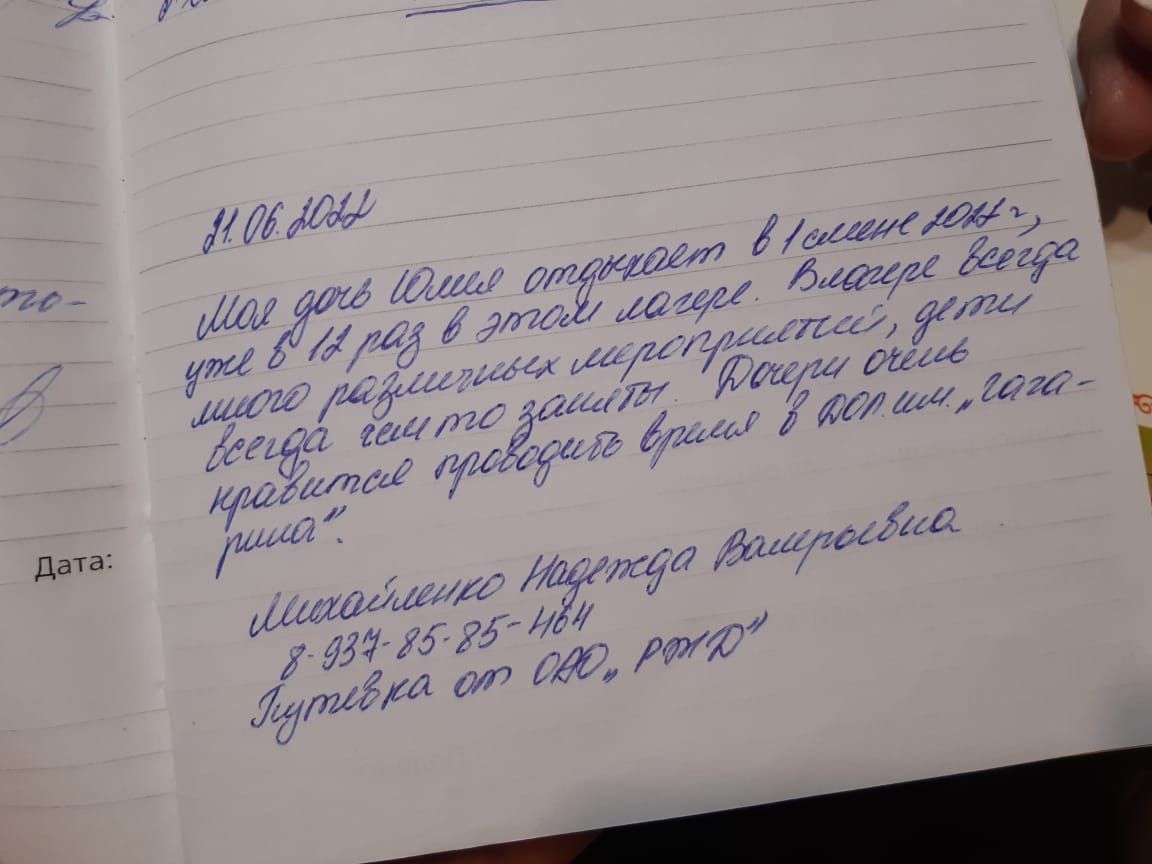 то-
Дата:
21.06.2022
Моя дочь Юлия отдыхает в 1 смене 2022 г,
уже в 12 раз в этом лагере. Влагере всегда
много различных мероприятий, дети
всегда чем то заняты. Дочери очень
нравится проводить время в ДОЛ.им. „гага-
рина".
Михайленко Надежда Валерьевна
8-937-85-85-464
Путевка от ОАО „РЖД"